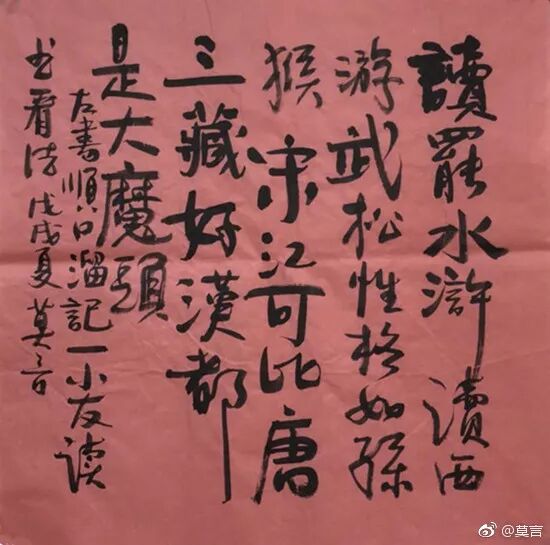 讀罷水滸读西
游武松性格如孫
猴宋江可比唐
三藏好漢都
是大魔頭
左書順口溜記一小友读
书看法戊戌夏莫言
@莫言